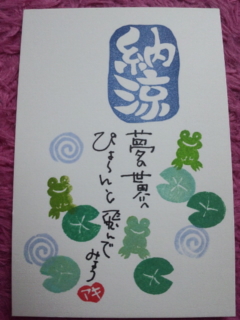 納涼
夢の世界へ
ぴょ〜んと飛んで
みよう
アキ